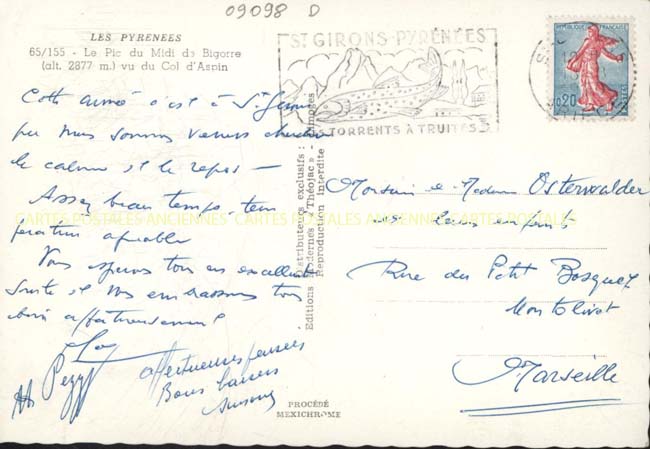 09098 D
LES PYRENEES
65/155 - Le Pic du Midi de Bigorre
(alt. 2877 m.) vu du Col d'Aspin
ST GIRONS-PYRÉNÉES
TORRENTS À TRUITES
0,20
Cette année c'est à St Girons
que nous sommes venus chercher
le calme et le repos -
Assez beau temps tem
pérature agréable
Vous espérons tous en excellente
santé et vous embrassons tous
bien affectueusement
affectueuses pensées
Bons baisers
Editions Modernes « Théojac » - Limoges
Distributeurs exclusifs :
Reproduction interdite
Monsieur et Madame Osterwalder
et leurs enfants
Rue du Petit Bosquet
Montolivet
Marseille
PROCÉDÉ
MEXICHROME
CARTES POSTALES ANCIENNES CARTES POSTALES ANCIENNES CARTES POSTALES